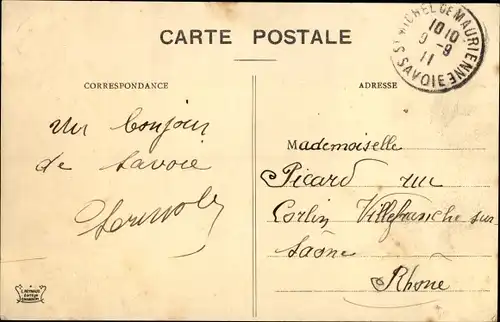 CARTE POSTALE
ST MICHEL DE MAURIENNE
10 10
9 -9
11
SAVOIE
CORRESPONDANCE
ADRESSE
un bonjour
de Savoie
Mademoiselle
Picard rue
Corlin Villefranche sur
Saône
Rhône